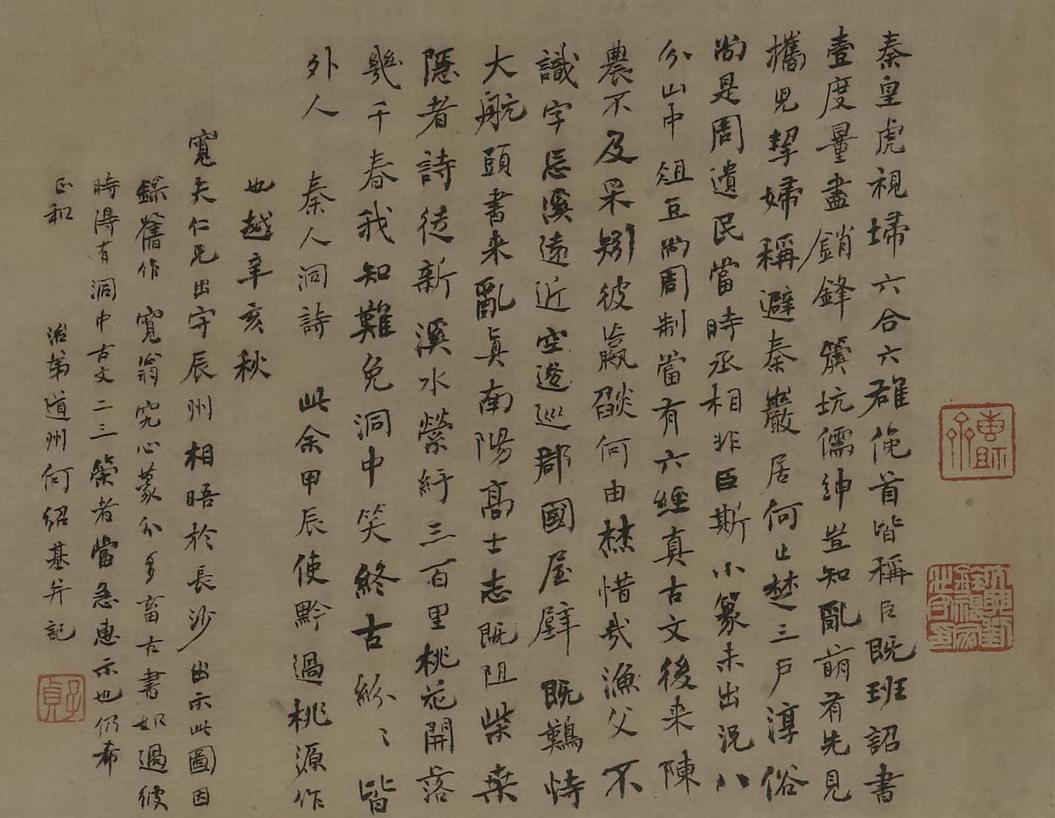 秦皇虎視埽六合六雄俛首皆稱臣既班詔書
壹度量盡銷鋒簇坑儒紳豈知亂萌有先見
攜兒挈婦稱避秦巖居何止楚三戶淳俗
尚是周遺民當時丞相非臣斯小篆未出況八
分山中俎豆尚周制當有六經真古文後來陳
農不及采矧彼嬴燄何由焚惜哉漁父不
識字忘溪遠近空迷巡郡國屋壁既難恃
大航頭書來亂真南陽高士志既阻柴桑
隱者詩徒新溪水縈紆三百里桃花開落
幾千春我知難免洞中笑終古紛〻皆
外人 秦人洞詩 此余甲辰使黔過桃源作
也越辛亥秋
寬夫仁兄出守辰州相晤於長沙出示此圖因
錄舊作 寬翁究心篆分多畜古書如過彼
時得有洞中古文二三策者當急惠示也仍希
正和
治弟道州何紹基并記
子貞